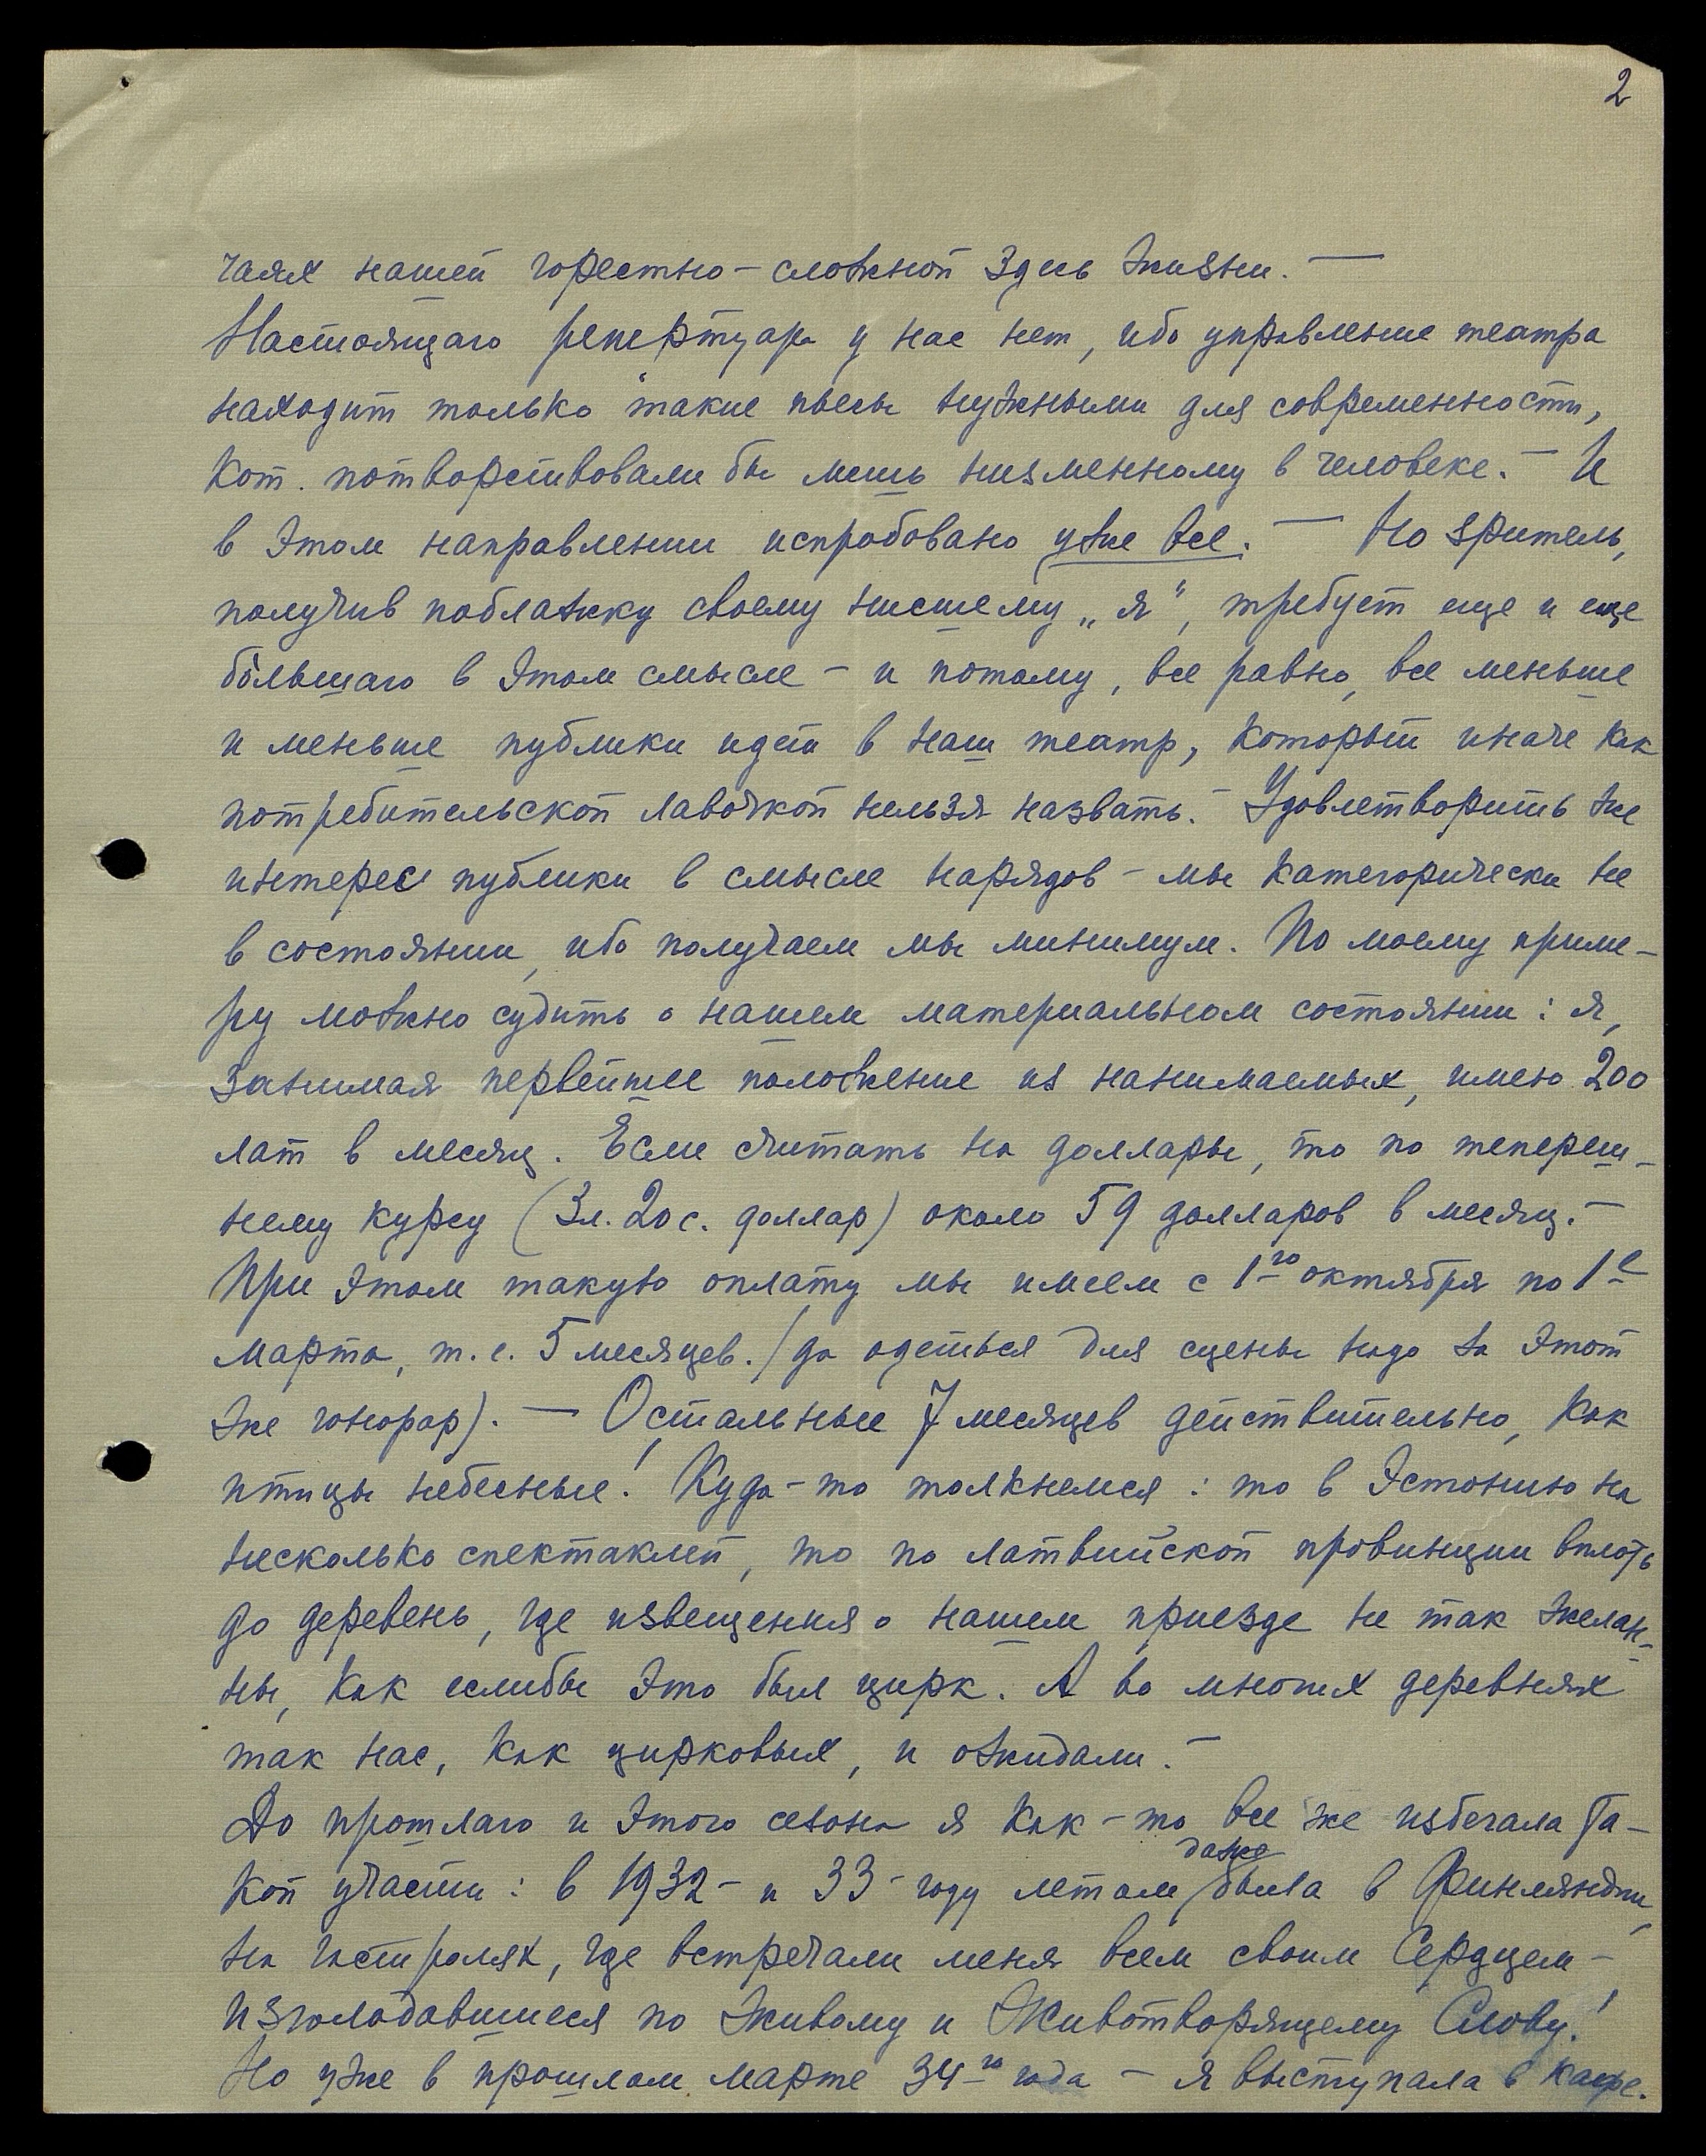 2
чаях нашей горестно-сложной здесь жизни. —
Настоящаго репертуара у нас нет, ибо управление театра
находит только "такие пьесы нужными для современности,
кот. потворствовали бы лишь низменному в человеке. — И
в этом направлении испробовано уже все. — Но зритель,
получив поблажку своему низшему „я", требует еще и еще
бо́льшаго в этом смысле — и потому, все равно, все меньше
и меньше публики идет в наш театр, который иначе как
потребительской лавочкой нельзя назвать. — Удовлетворить же
интерес публики в смысле нарядов — мы категорически не
в состоянии, ибо получаем мы минимум. По моему приме-
ру можно судить о нашем материальном состоянии: я,
занимая первейшее положение из нанимаемых, имею 200
лат в месяц. Если считать на доллары, то по тепереш-
нему курсу (3л. 20с. доллар) около 59 долларов в месяц. —
При этом такую оплату мы имеем с 1го октября по 1е
марта, т.е. 5 месяцев. /да одеться для сцены надо на этот
же гонорар). — Остальные 7 месяцев действительно, как
птицы небесные! Куда-то толкнемся: то в Эстонию на
несколько спектаклей, то по латвийской провинции вплоть
до деревень, где извещения о нашем приезде не так желан-
ны, как еслибы это был цирк. А во многих деревнях
так нас, как цирковых, и ожидали. —
До прошлаго и этого сезона я как-то все же избегала та-
кой участи: в 1932- и 33-году летом даже была в Финляндии,
на гастролях, где встречали меня всем своим Сердцем —
изголодавшиеся по живому и Животворящему Слову!
Но уже в прошлом марте 34го года — я выступала в кафе.